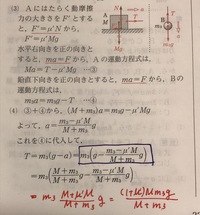 (3) Aにはたらく動摩擦
力の大きさを F' とする
と, F'=μ'N から,
F'=μ'Mg
水平右向きを正の向きと
すると, ma=F から, A の運動方程式は,
Ma=T-μ'Mg …③
鉛直下向きを正の向きとすると, ma=F から, B の
運動方程式は,
m₃a=m₃g-T …④
(4) ③+④から, (M+m₃)a=m₃g-μ'Mg
よって, a=\frac{m₃-μ'M}{M+m₃}g
これを④に入れて,
T=m₃(g-a)=m₃(g-\frac{m₃-μ'M}{M+m₃}g)
=m₃(\frac{M+m₃}{M+m₃}g-\frac{m₃-μ'M}{M+m₃}g)
=m₃\frac{M+μ'M}{M+m₃}g=\frac{(1+μ')Mm₃g}{M+m₃}
N
a
A
M
T
F'
Mg
B
m₃
T
a
m₃g